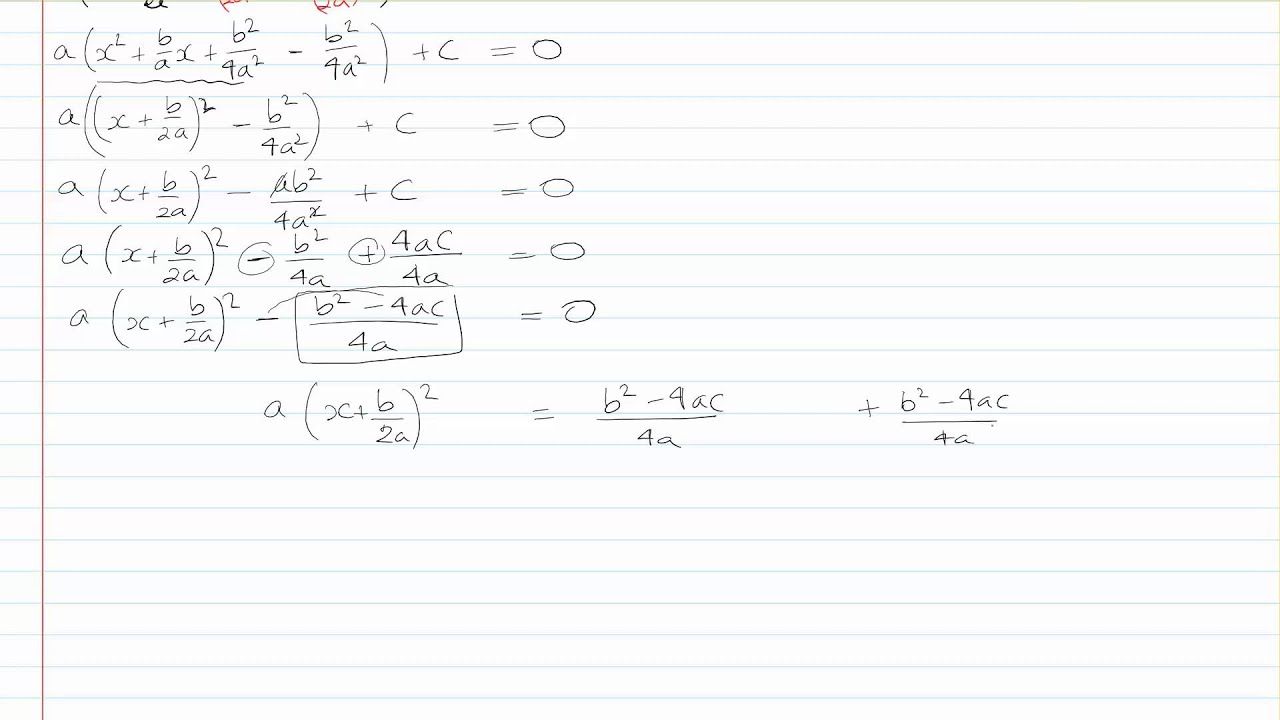 a(x² + b/a x + b²/4a² - b²/4a²) + c = 0
a((x + b/2a)² - b²/4a²) + c = 0
a(x + b/2a)² - ab²/4a² + c = 0
a(x + b/2a)² - b²/4a + 4ac/4a = 0
a(x + b/2a)² - b² - 4ac/4a = 0
a(x + b/2a)² = b² - 4ac/4a + b² - 4ac/4a